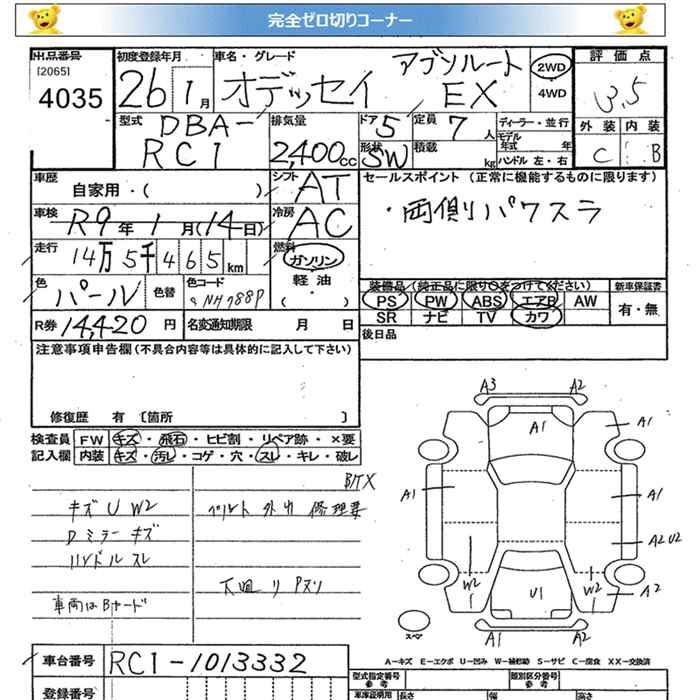 完全ゼロ切りコーナー
出品番号
[2065]
4035
初度登録年月
26 1月
車名・グレード
オデッセイ アブソルート EX
2WD
4WD
評価点
3.5
外装 内装
C B
型式
DBA-
RC1
排気量
2,400cc
ドア 5
形状 SW
定員 7人
積載 kg
ディーラー・並行
モデル年式 年
ハンドル 左・右
車歴
自家用・( )
シフト AT
車検
R9年1月(14日)
冷房 AC
走行
14万5千465km
燃料
ガソリン
軽油
・( )
色
パール
色替
色コード
NH788P
R券 14,420円
名変通知期限 月 日
セールスポイント(正常に機能するものに限ります)
・両側パワスラ
装備品(純正品に限り○をつけてください)
PS PW ABS エアB AW
SR ナビ TV カワ
新車保証書
有・無
後日品
注意事項申告欄(不具合内容等は具体的に記入して下さい)
修復歴 有 〔箇所 〕
検査員記入欄
FW キズ・飛石・ヒビ割・リペア跡・×要
内装 キズ・汚レ・コゲ・穴・スレ・キレ・破レ
キズ U W2
Dミラーキズ
ハンドルスレ
車両はBヤード
外れ 修理要
下廻り
A3 A2
A1
A1
A1
A1
A2 U2
W2
W2
A2
U1
A1
A2
スペア
A-キズ E-エクボ U-凹み W-補修跡 S-サビ C-腐食 XX-交換済
車台番号
RC1-1013332
登録番号
型式指定番号
参考
類別区分番号
参考
車庫証明用
長さ
幅
高さ